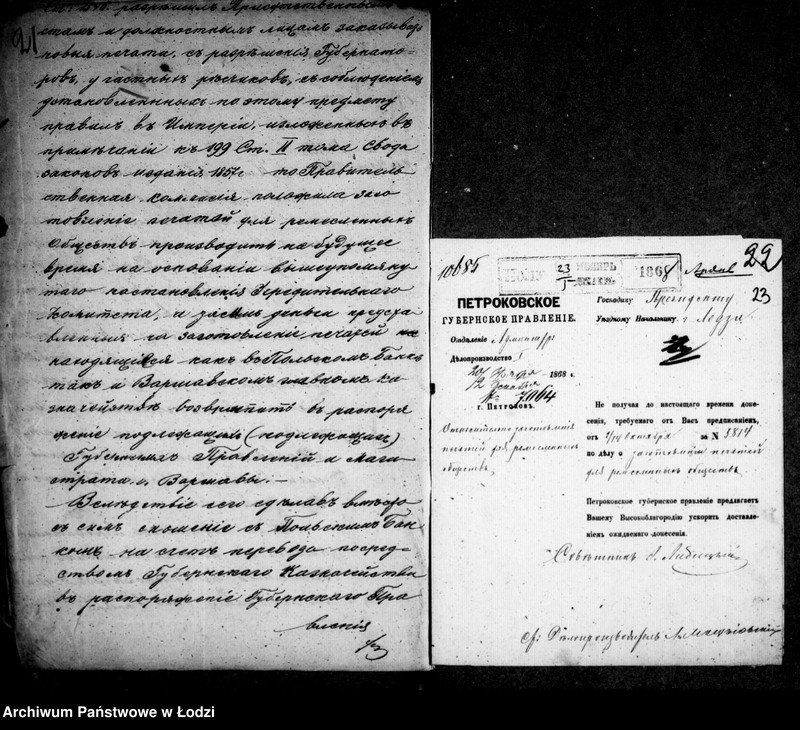 21
Ст. 1576. разрешил Присутственным
стам и должностным лицам заказывать
новыя печати, съ разрешения Губернато-
ров, у частных резчиков, съ соблюдением
установленных по этому предмету
правил в Империи, изложенных в
примечании к 199 Ст. II тома Свода
законов издания 1857 г. то Правитель
ственная коммисия положила заго
товление печатей для ремесленных
обществ производить на будущее
время на основании вышеупомяну
таго постановления Учредительнаго
Комитета, а затем деньги предста
вленныя на заготовление печатей
находящияся как в Польском Банке
так и Варшавском главном ка
значействе возвратить в распоря
жение подлежащих (подлежащих)
Губернских Правлений и Маги
страта г. Варшавы. —
Вследствие сего сделав вместе
с сим сношение с Польским Бан
ком на счет перевода посред-
ством Губернскаго Казначейства
в распоряжение Губернскаго Пра
вления
10685
НОЯБРЬ
23
1868
ДЕКАБРЬ
22
23
ПЕТРОКОВСКОЕ
ГУБЕРНСКОЕ ПРАВЛЕНІЕ.
Отдѣленіе Администр
Дѣлопроизводство I
20 Ноября
2 Декабря 1868 г.
№ 7064
г. Петроковъ.
Относительно заготовленія
печатей для ремесленныхъ
обществъ.
Господину Президенту
Уѣздному Начальнику. г. Лодзи
Не получая до настоящаго времени доне-
сенія, требуемаго отъ Васъ предписаніемъ,
отъ 2/14 Октября за N 5814
по дѣлу о заготовленіи печатей
для ремесленныхъ обществъ
Петроковское губернское правленіе предлагаетъ
Вашему Высокоблагородію ускорить доставле-
ніемъ ожидаемаго донесенія.
Совѣтникъ
Дѣлопроизводитель
Archiwum Państwowe w Łodzi